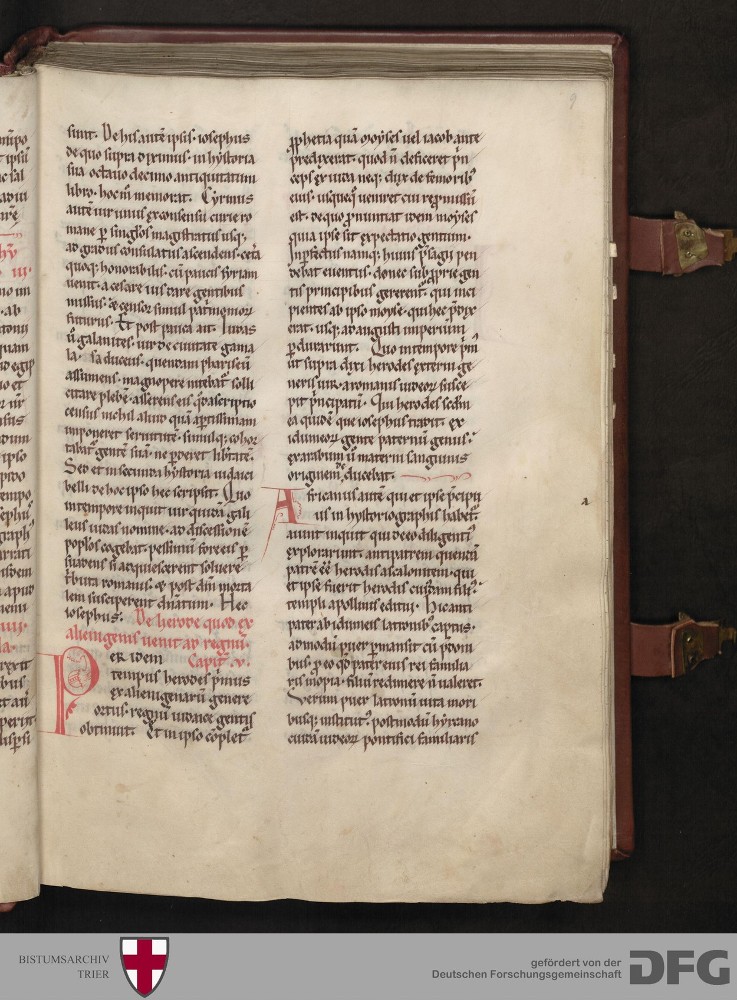 sunt. De his autē ipsis. iosephus
de quo supra diximus. in hystoria
sua octavo decimo antiquitatum
libro. hoc m̄ memorat. Cyrinus
autē vir unus ex consensu curie ro
mane ꝑ singłos magistratus usq;
ad gradus consulatus ascendens. cet̄a
quoq; honorabilis. cū paucis syriam
venit. a cesare ius dare gentibus
missus. & censor simul patrimonior̄
futurus. Et post pauca ait. Iudas
ū galanites. vir de civitate gama
la. sadduceus. quendam phariseū
assumens. magnopere nitebat̄ solli
citare plebē. asserens eis q̄d ascriptio
census nichil aliud quā aꝑtissimam
imponeret servitutē. simulq; cohor
tabat̄ gentē suā. ne ꝑderet libtatē.
Sed et in secunda hystoria iudaici
belli de hoc ipso hec scripsit. Quo
in tempore inquit vir quidā gali
leus iudas nomine. ad discessionē
poplos cogebat. pessimū fore eis ꝑ
suadens si acquiescerent solvere
tbuta romanis. & post dm̄ morta
lem susciperent dn̄atum. Hec
iosephus. De herode quod ex
alienigenis venit ad regnū.
Per idem Capit̄. v.
tempus herodes pimus
ex alienigenarū genere
ortus. regnū iudaice gentis
obtinuit. Et in ipso cōplet̄
ꝓphetia quā moyses vel iacob ante
predixerat. quod n̄ deficeret pn
ceps ex iuda neq; dux de femorib;
eius. usq;quo veniret cui repmissū
est. de quo ꝓnuntiat idem moyses
quia ipse sit expectatio gentium.
Inꝑfectus namq; huius psagii pen
debat eventus. donec sub ꝓprie gen
tis principibus gererent̄. qui inci
pientes ab ipso moyse. qui hec pdix
erat. usq; ad augusti imperium
ꝑdurarunt. Quo in tempore pm̄
ut supra dixi herodes externi ge
neris vir. a romanis iudeor̄ susce
pit pncipatū. Qui herodes scdm̄
ea quidē que iosephus tradit. ex
idumeor̄ gente paternū genus.
ex arabum ū materni sanguinis
originem deducebat.
Africanus autē qui et ipse pcipu
us in hystoriographis habet̄.
aiunt inquit qui de eo diligenti
explorarunt. antipatrem quendā
patrē eē herodis ascalonitem. qui
et ipse fuerit herodis cuiusdam fili
templi apollinis editui. Hic anti
pater ab idumeis latronib; captus.
admodū puer ꝑmansit cū pdoni
bus. ꝓ eo qd̄ pater eius rei familia
ris inopia. filiū redimere n̄ valeret.
Verum puer latronū vita mori
busq; institut. postmodū hyrcano
cuidā iudeor̄ pontifici familiaris
9
a
BISTUMSARCHIV
TRIER
gefördert von der
Deutschen Forschungsgemeinschaft
DFG